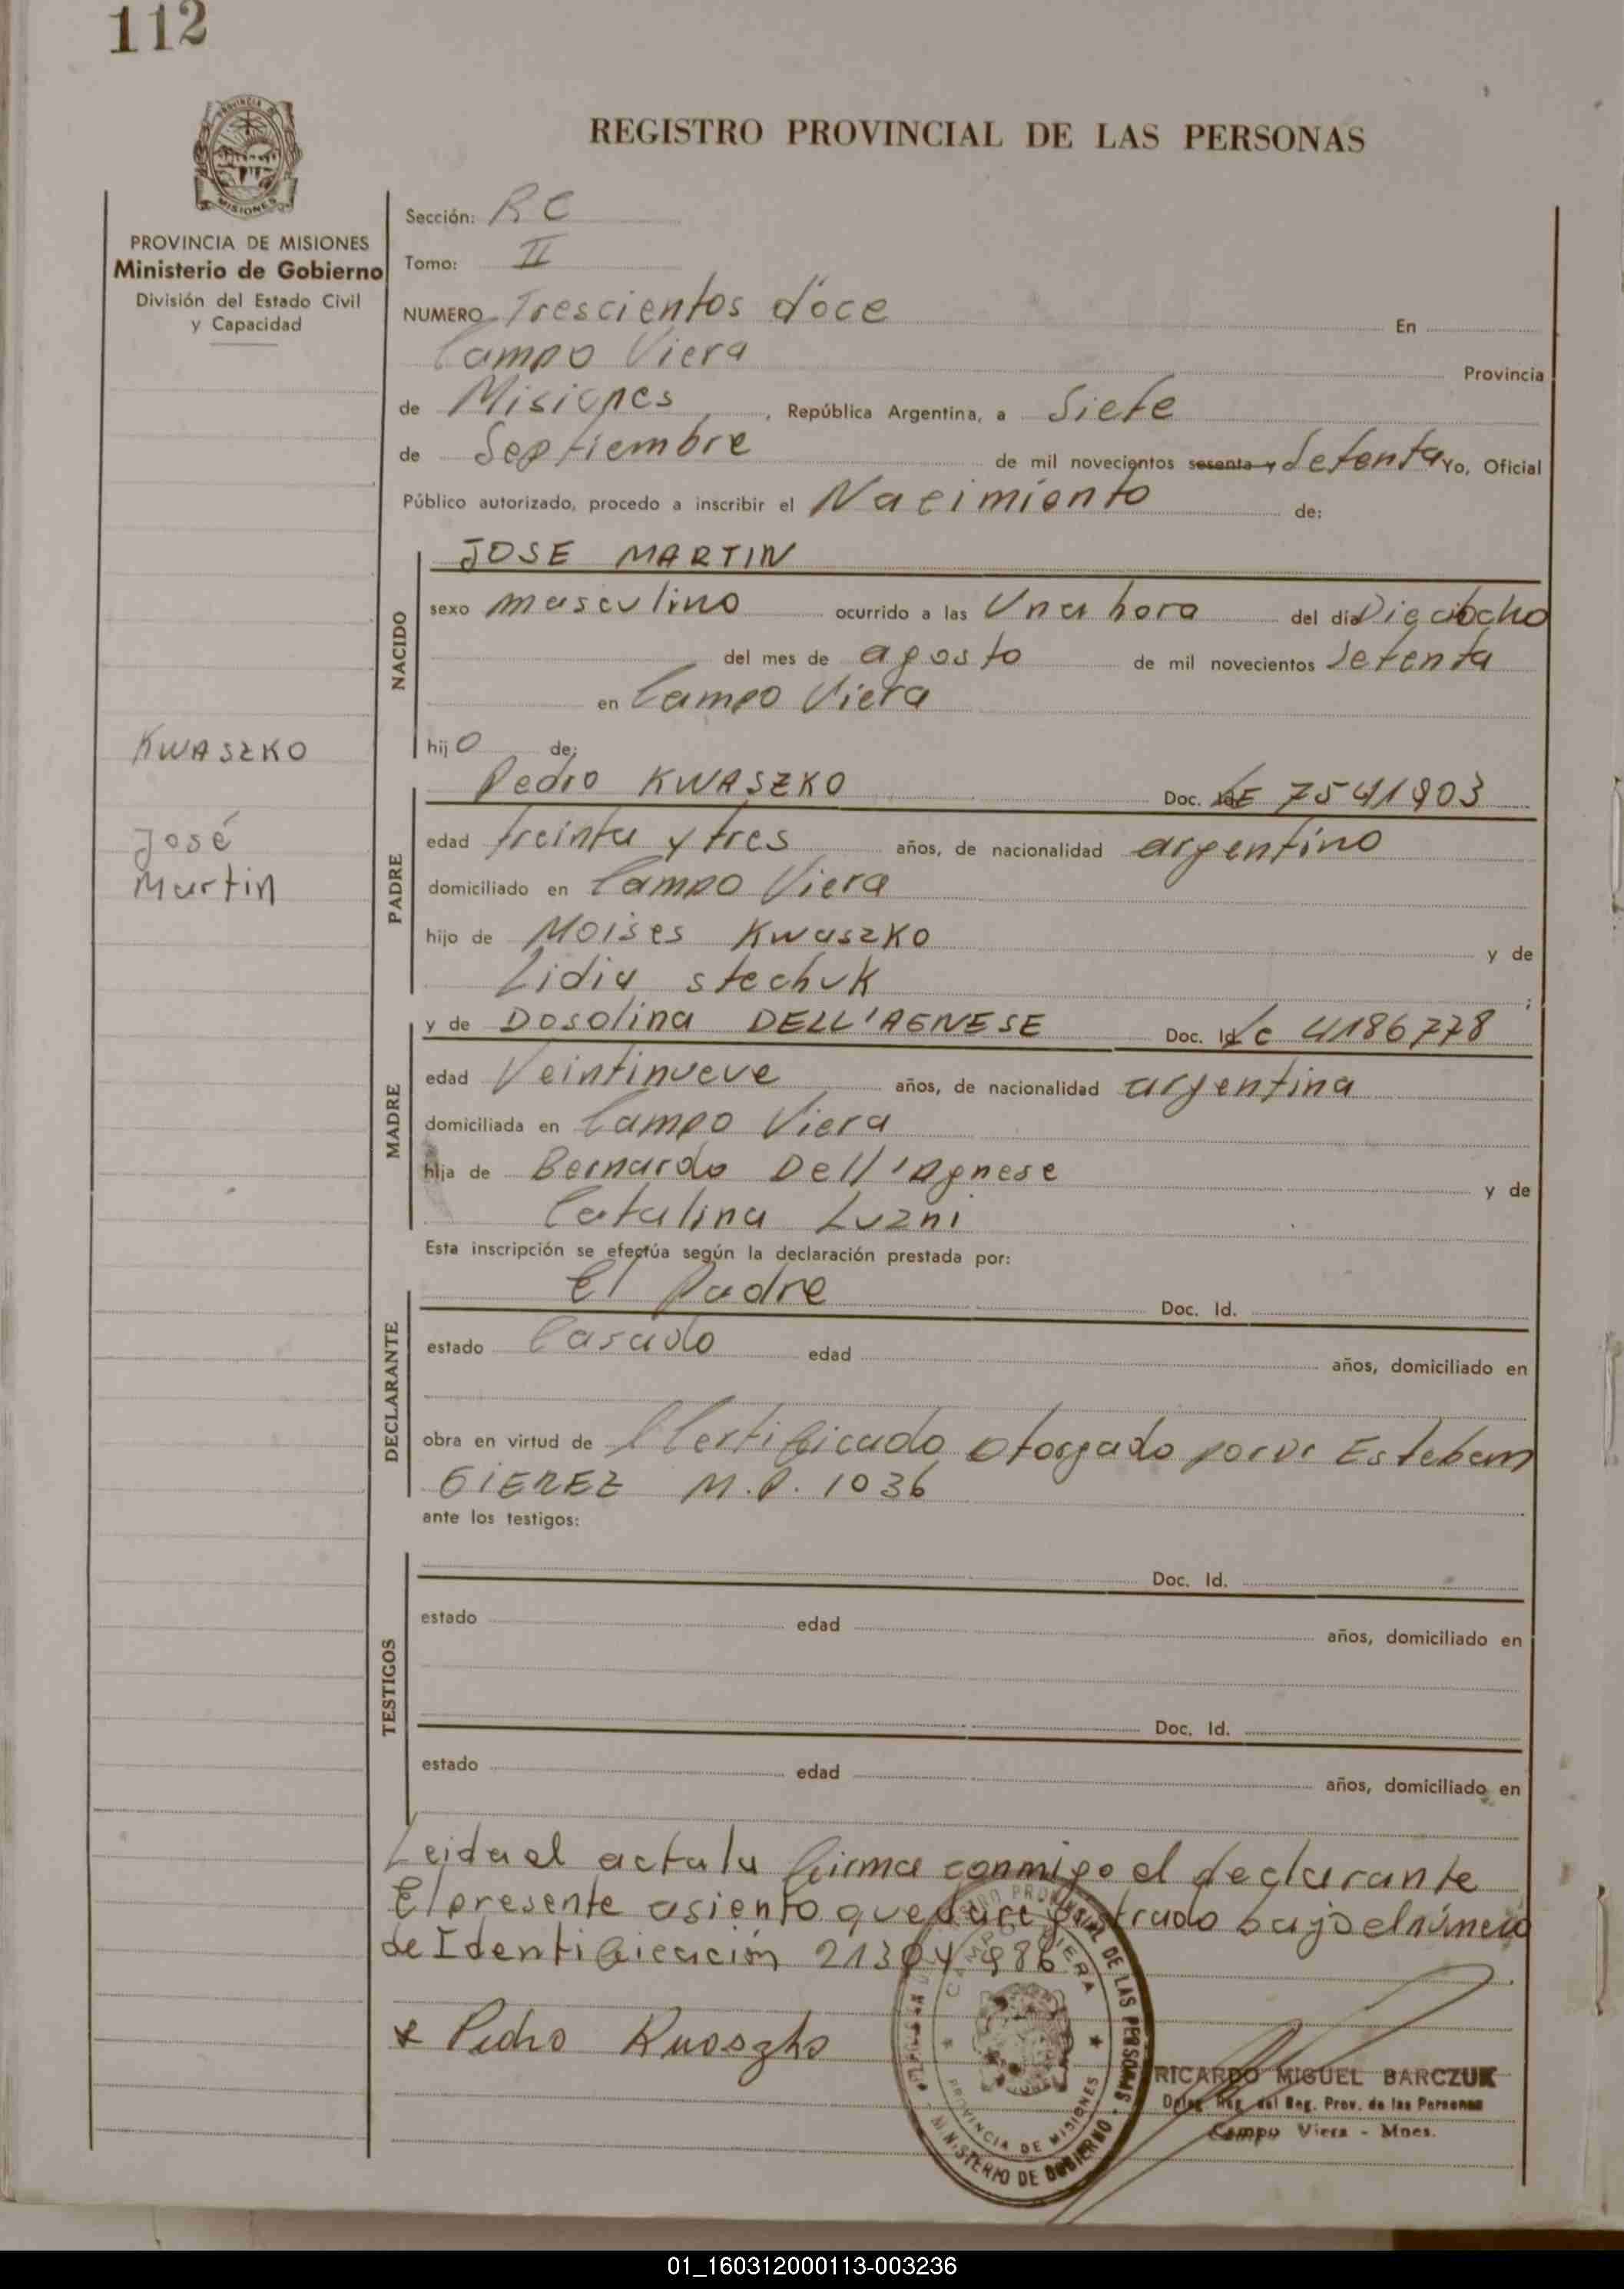 112
REGISTRO PROVINCIAL DE LAS PERSONAS
PROVINCIA DE MISIONES
Ministerio de Gobierno
División del Estado Civil
y Capacidad
Sección: R C
Tomo: II
NUMERO Trescientos doce En
Campo Viera Provincia
de Misiones, República Argentina, a Siete
de Septiembre de mil novecientos sesenta y Setenta Yo, Oficial
Público autorizado, procedo a inscribir el Nacimiento de:
NACIDO
JOSE MARTIN
sexo masculino ocurrido a las Una hora del dia Dieciocho
del mes de agosto de mil novecientos Setenta
en Campo Viera
hijo de:
KWASZKO
José
Martin
PADRE
Pedro KWASZKO Doc. LE 7541903
edad treinta y tres años, de nacionalidad argentino
domiciliado en Campo Viera
hijo de Moises Kwaszko y de
Lidia stechuk;
MADRE
y de Dosolina DELL'AGNESE Doc. Id. LC 4186778
edad Veintinueve años, de nacionalidad argentina
domiciliada en Campo Viera
hija de Bernardo Dell'Agnese y de
Catalina Luzni
Esta inscripción se efectúa según la declaración prestada por:
DECLARANTE
El Padre Doc. Id.
estado Casado edad años, domiciliado en
obra en virtud de Certificado otorgado por Dr Esteban
GIEREZ M.P. 1036
ante los testigos:
TESTIGOS
Doc. Id.
estado edad años, domiciliado en
Doc. Id.
estado edad años, domiciliado en
Leida el acta la firma conmigo el declarante
El presente asiento queda registrado bajo el número
de Identificación 21304986
x Pedro Kuaszko
REGISTRO PROVINCIAL DE LAS PERSONAS
CAMPO VIERA
PROVINCIA DE MISIONES
MINISTERIO DE GOBIERNO
RICARDO MIGUEL BARCZUK
Deleg. Reg. del Reg. Prov. de las Personas
Campo Viera - Mnes.
01_160312000113-003236